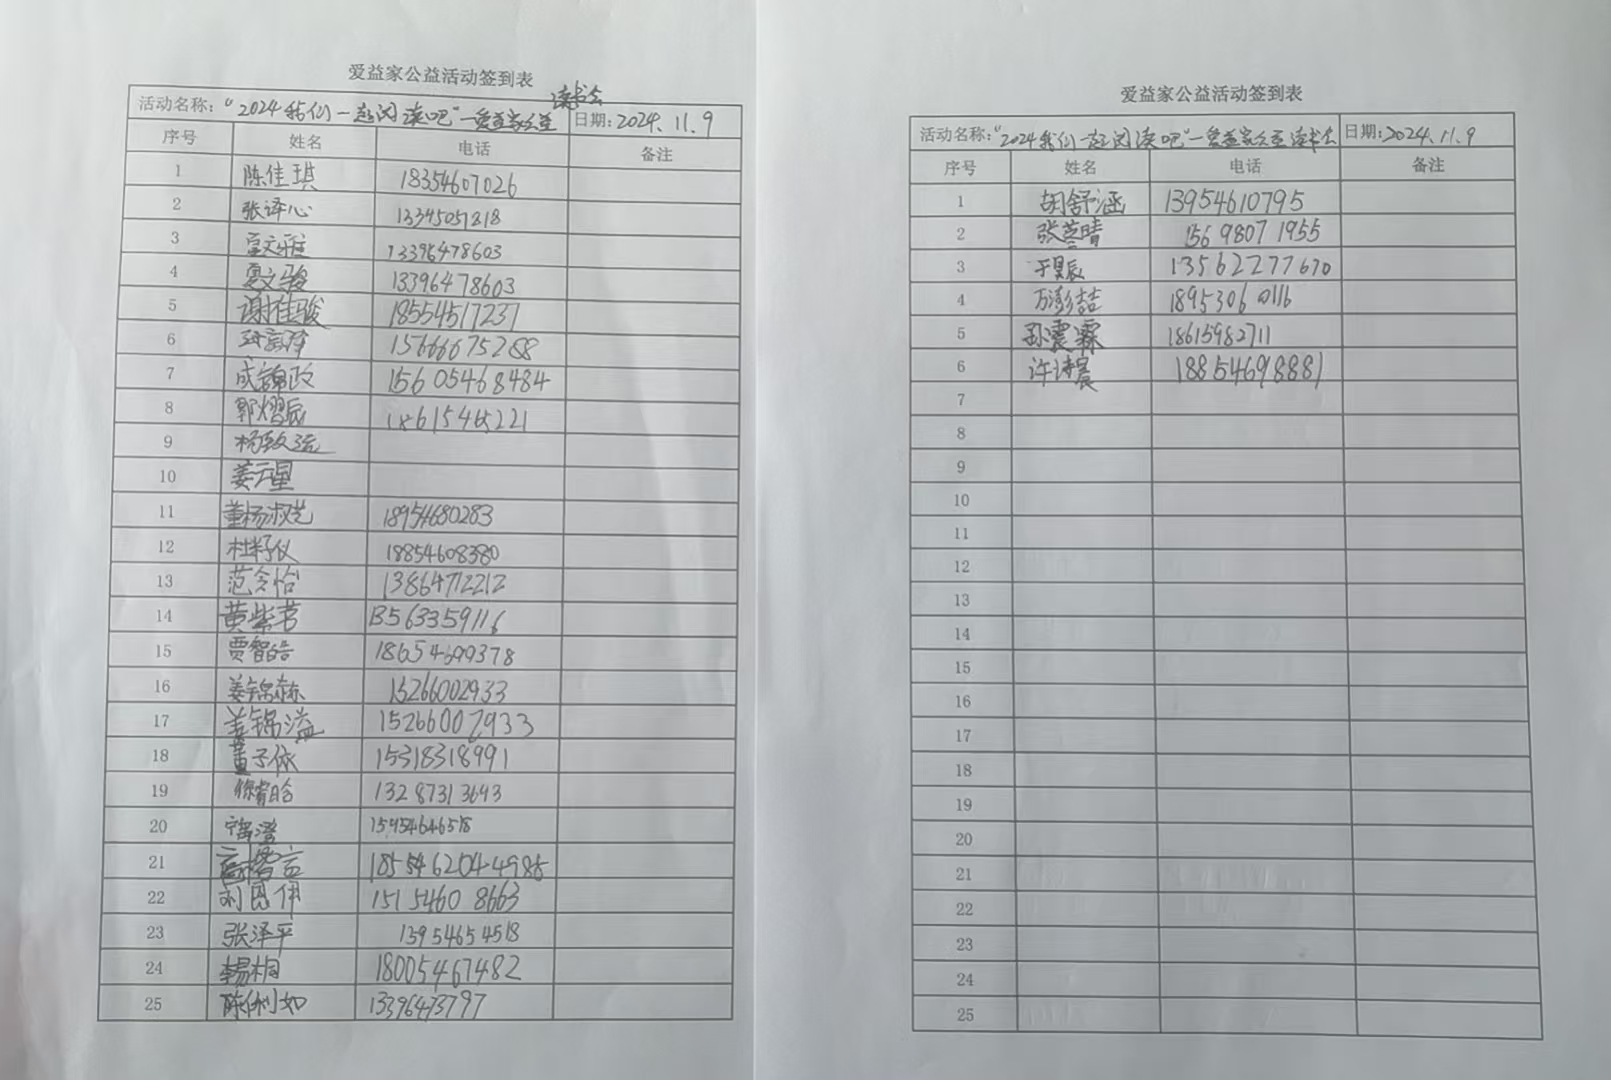 爱益家公益活动签到表
读书会
活动名称：“2024我们一起阅读吧”—爱益家公益 日期：2024.11.9
序号 姓名 电话 备注
1 陈佳琪 18354607026
2 张译心 13345057818
3 13396478603
4 夏文骏 13396478603
5 谢佳骏 18554517237
6 15666675288
7 成锦政 15605468484
8 郭熠辰 18615465221
9
10 姜云星
11 董杨淑芝 18954680283
12 杜籽仪 18854608380
13 范今怡 13864712212
14 黄紫茗 13563359116
15 贾智皓 18654699378
16 姜锦赫 15266002933
17 姜锦溢 15266002933
18 董子依 15318318991
19 徐睿晗 13287313693
20 15954646518
21 1855462044985
22 刘恩伊 15154608663
23 张泽平 13954654518
24 18005467482
25 陈俐如 13396473797
爱益家公益活动签到表
活动名称：“2024我们一起阅读吧”—爱益家公益读书会 日期：2024.11.9
序号 姓名 电话 备注
1 胡舒涵 13954610795
2 156 9807 1955
3 于昊辰 13562277670
4 万澎喆 18953060116
5 孙震霖 18615982711
6 许诗晨 18854698881
7
8
9
10
11
12
13
14
15
16
17
18
19
20
21
22
23
24
25